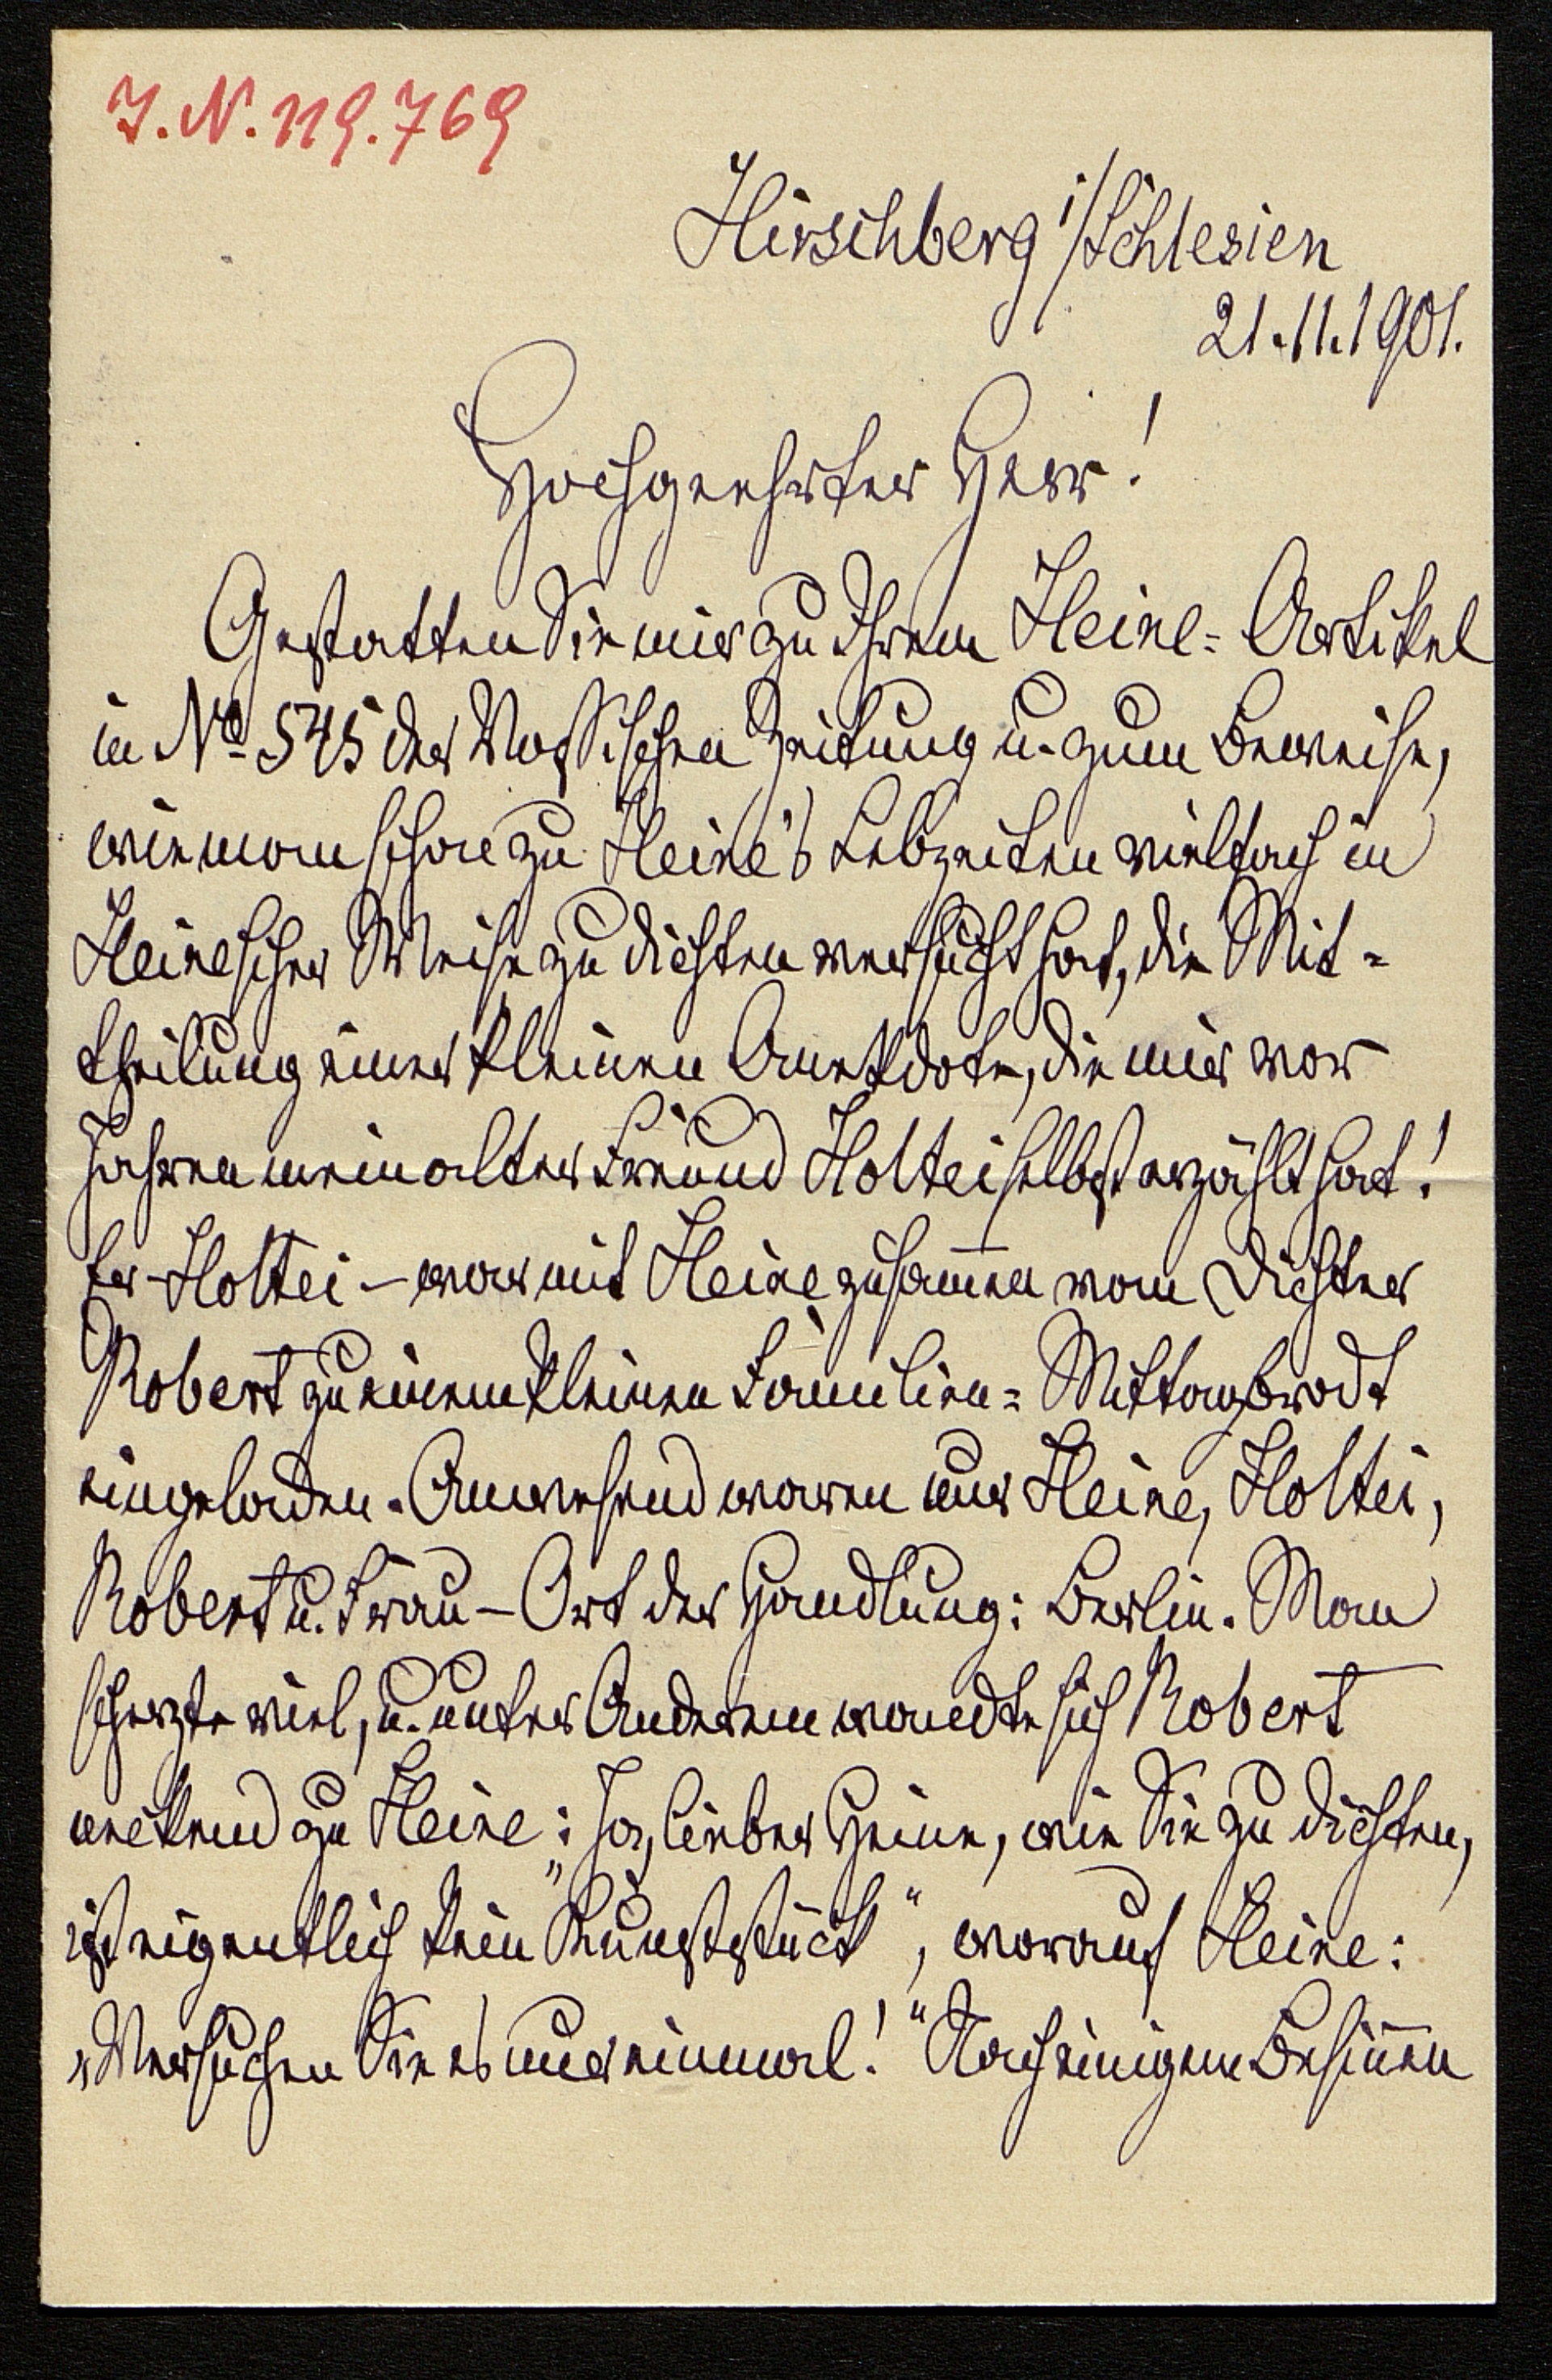 J. N. 119.769
Hirschberg i/Schlesien
21.11.1901.
Hochgeehrter Herr!
Gestatten Sie mir zu Ihrem Heine-Artikel
in No 545 der Vossischen Zeitung u. zum Beweise,
wie man schon zu Heine's Lebzeiten vielfach in
Heinescher Weise zu dichten versucht hat, die Mit-
theilung einer kleinen Anekdote, die mir vor
Jahren mein alter Freund Holtei selbst erzählt hat!
Er – Holtei – war mit Heine zusam̄en vom Dichter
Robert zu einem kleinen Familien-Mittagbrodt
eingeladen. Anwesend waren nur Heine, Holtei,
Robert u. Frau – Ort der Handlung: Berlin. Man
scherzte viel, u. unter Anderem wandte sich Robert
neckend zu Heine: „Ja, lieber Heine, wie Sie zu dichten,
ist eigentlich kein Kunststück“, worauf Heine:
„Versuchen Sie es nur einmal!“ Nach einigem Besin̄en